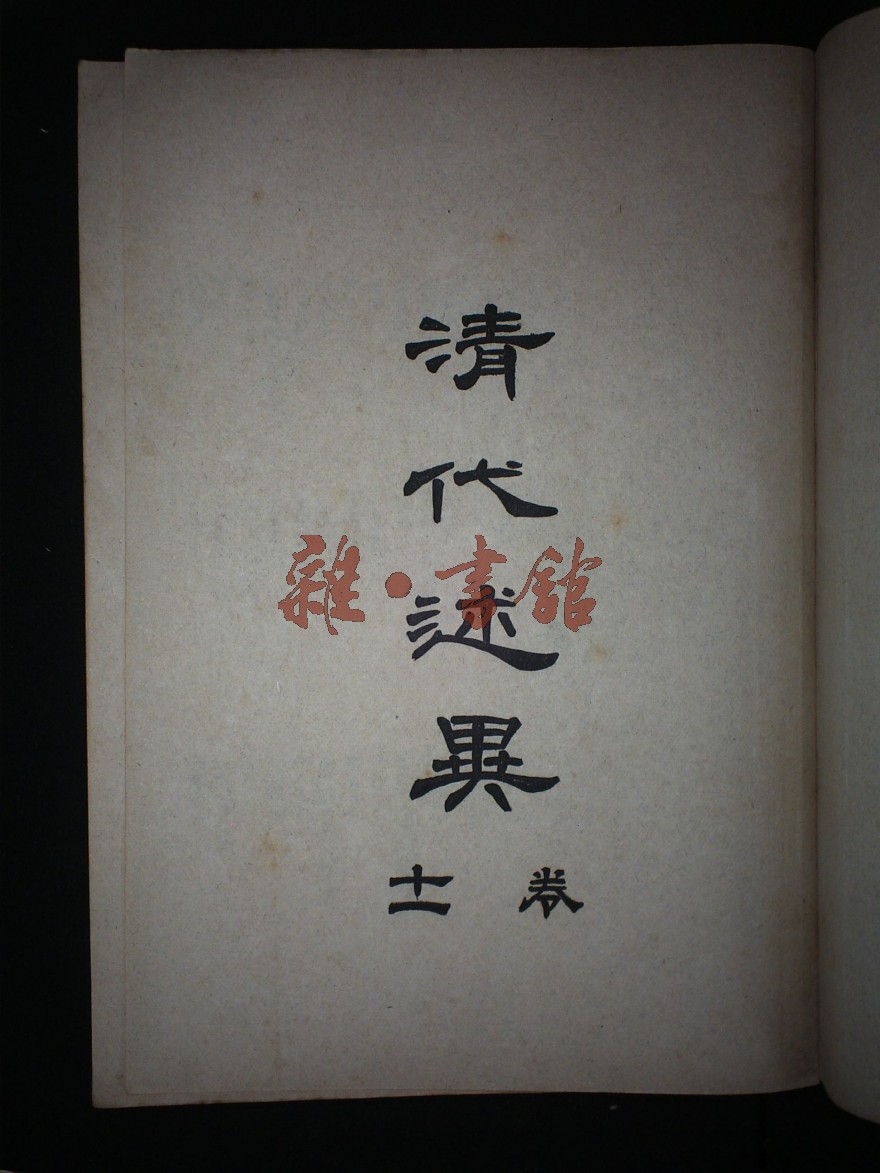 清代述異
卷十一
雜·書館